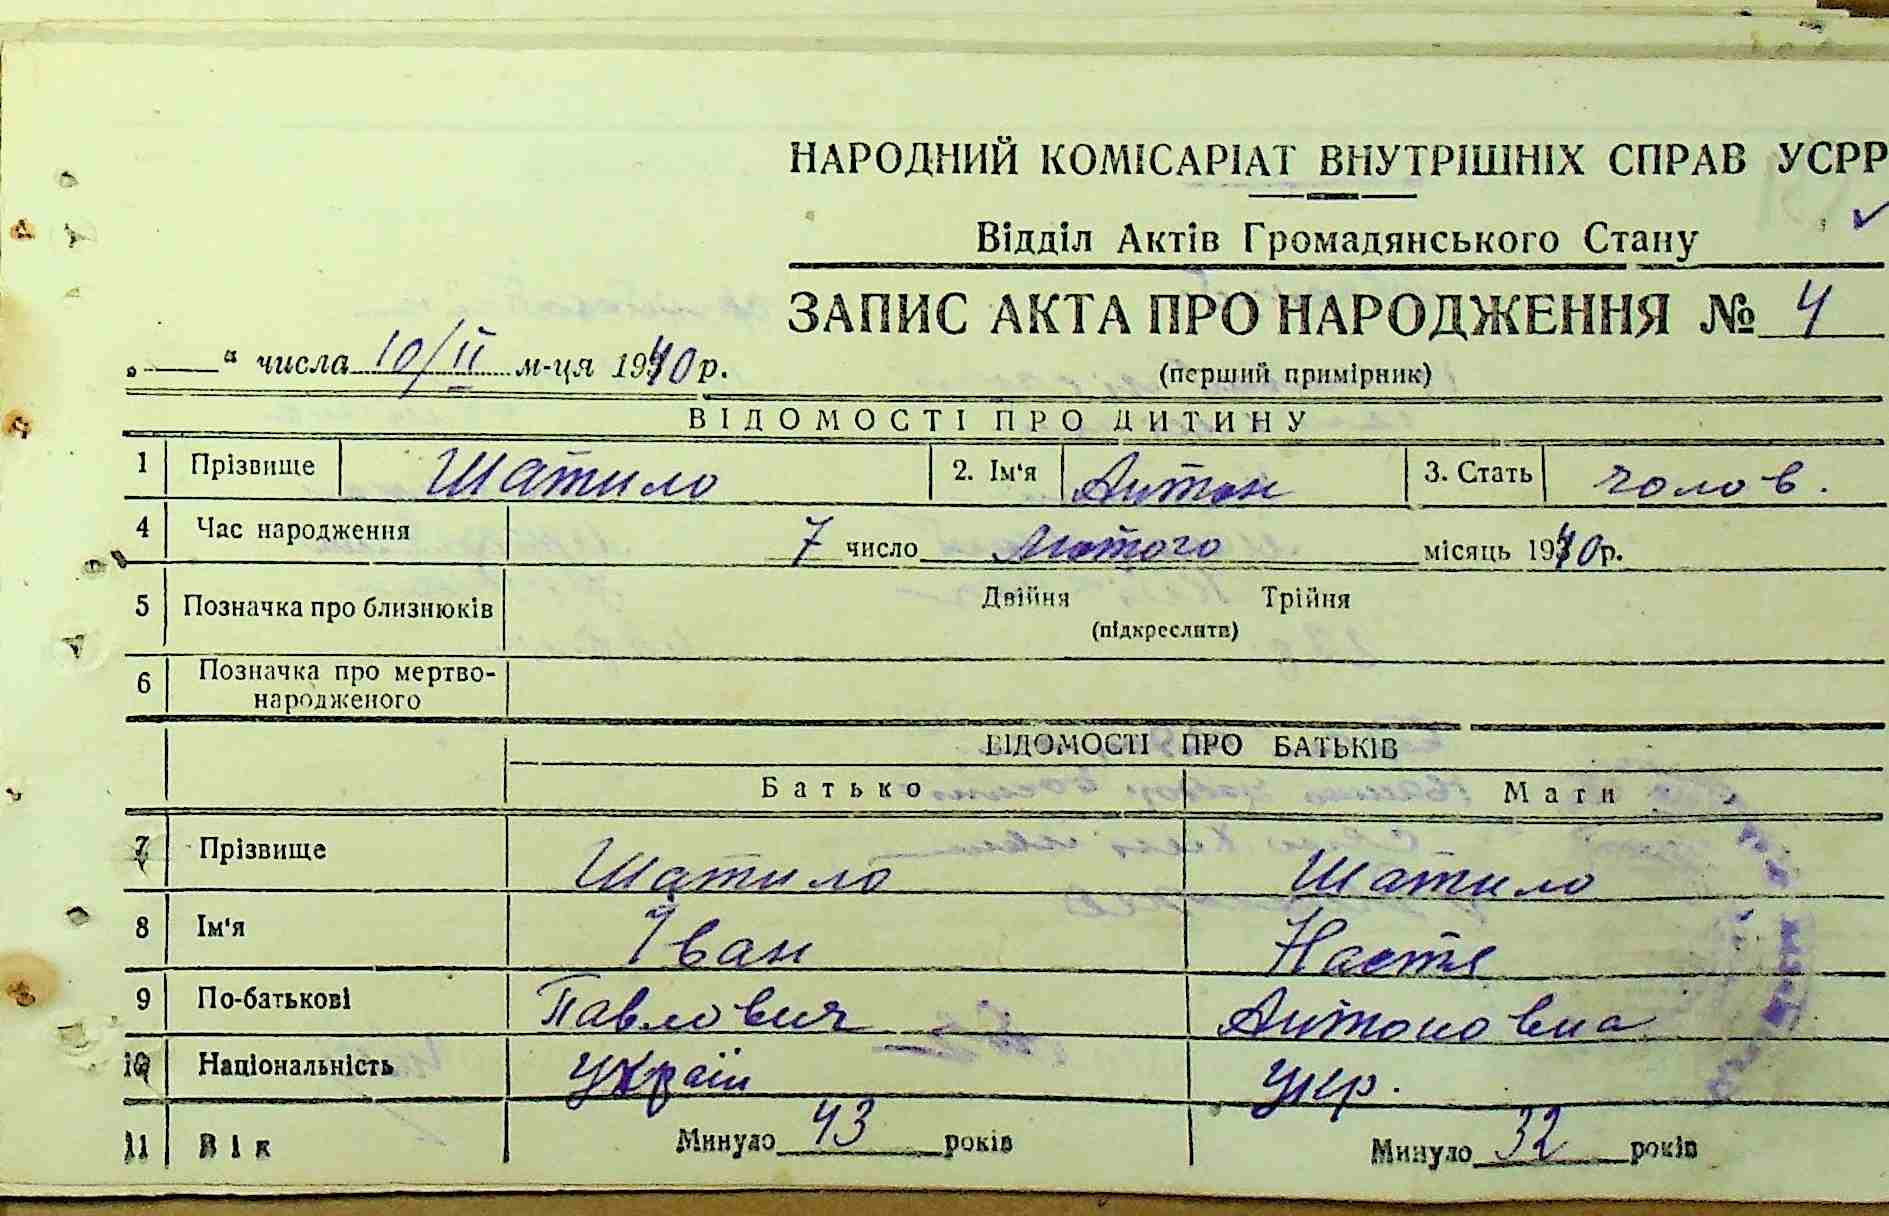 НАРОДНИЙ КОМІСАРІАТ ВНУТРІШНІХ СПРАВ УСРР
Відділ Актів Громадянського Стану
ЗАПИС АКТА ПРО НАРОДЖЕННЯ № 4
„ “ числа 10/II м-ця 1940 р.
(перший примірник)
ВІДОМОСТІ ПРО ДИТИНУ
1 Прізвище Шатило 2. Ім'я Антон 3. Стать чолов.
4 Час народження 7 число Лютого місяць 1940 р.
5 Позначка про близнюків Двійня Трійня
(підкреслити)
6 Позначка про мертво-
народженого
ВІДОМОСТІ ПРО БАТЬКІВ
Батько Мати
7 Прізвище Шатило Шатило
8 Ім'я Іван Настя
9 По-батькові Павлович Антоновна
10 Національність Україн укр.
11 Вік Минуло 43 років Минуло 32 років